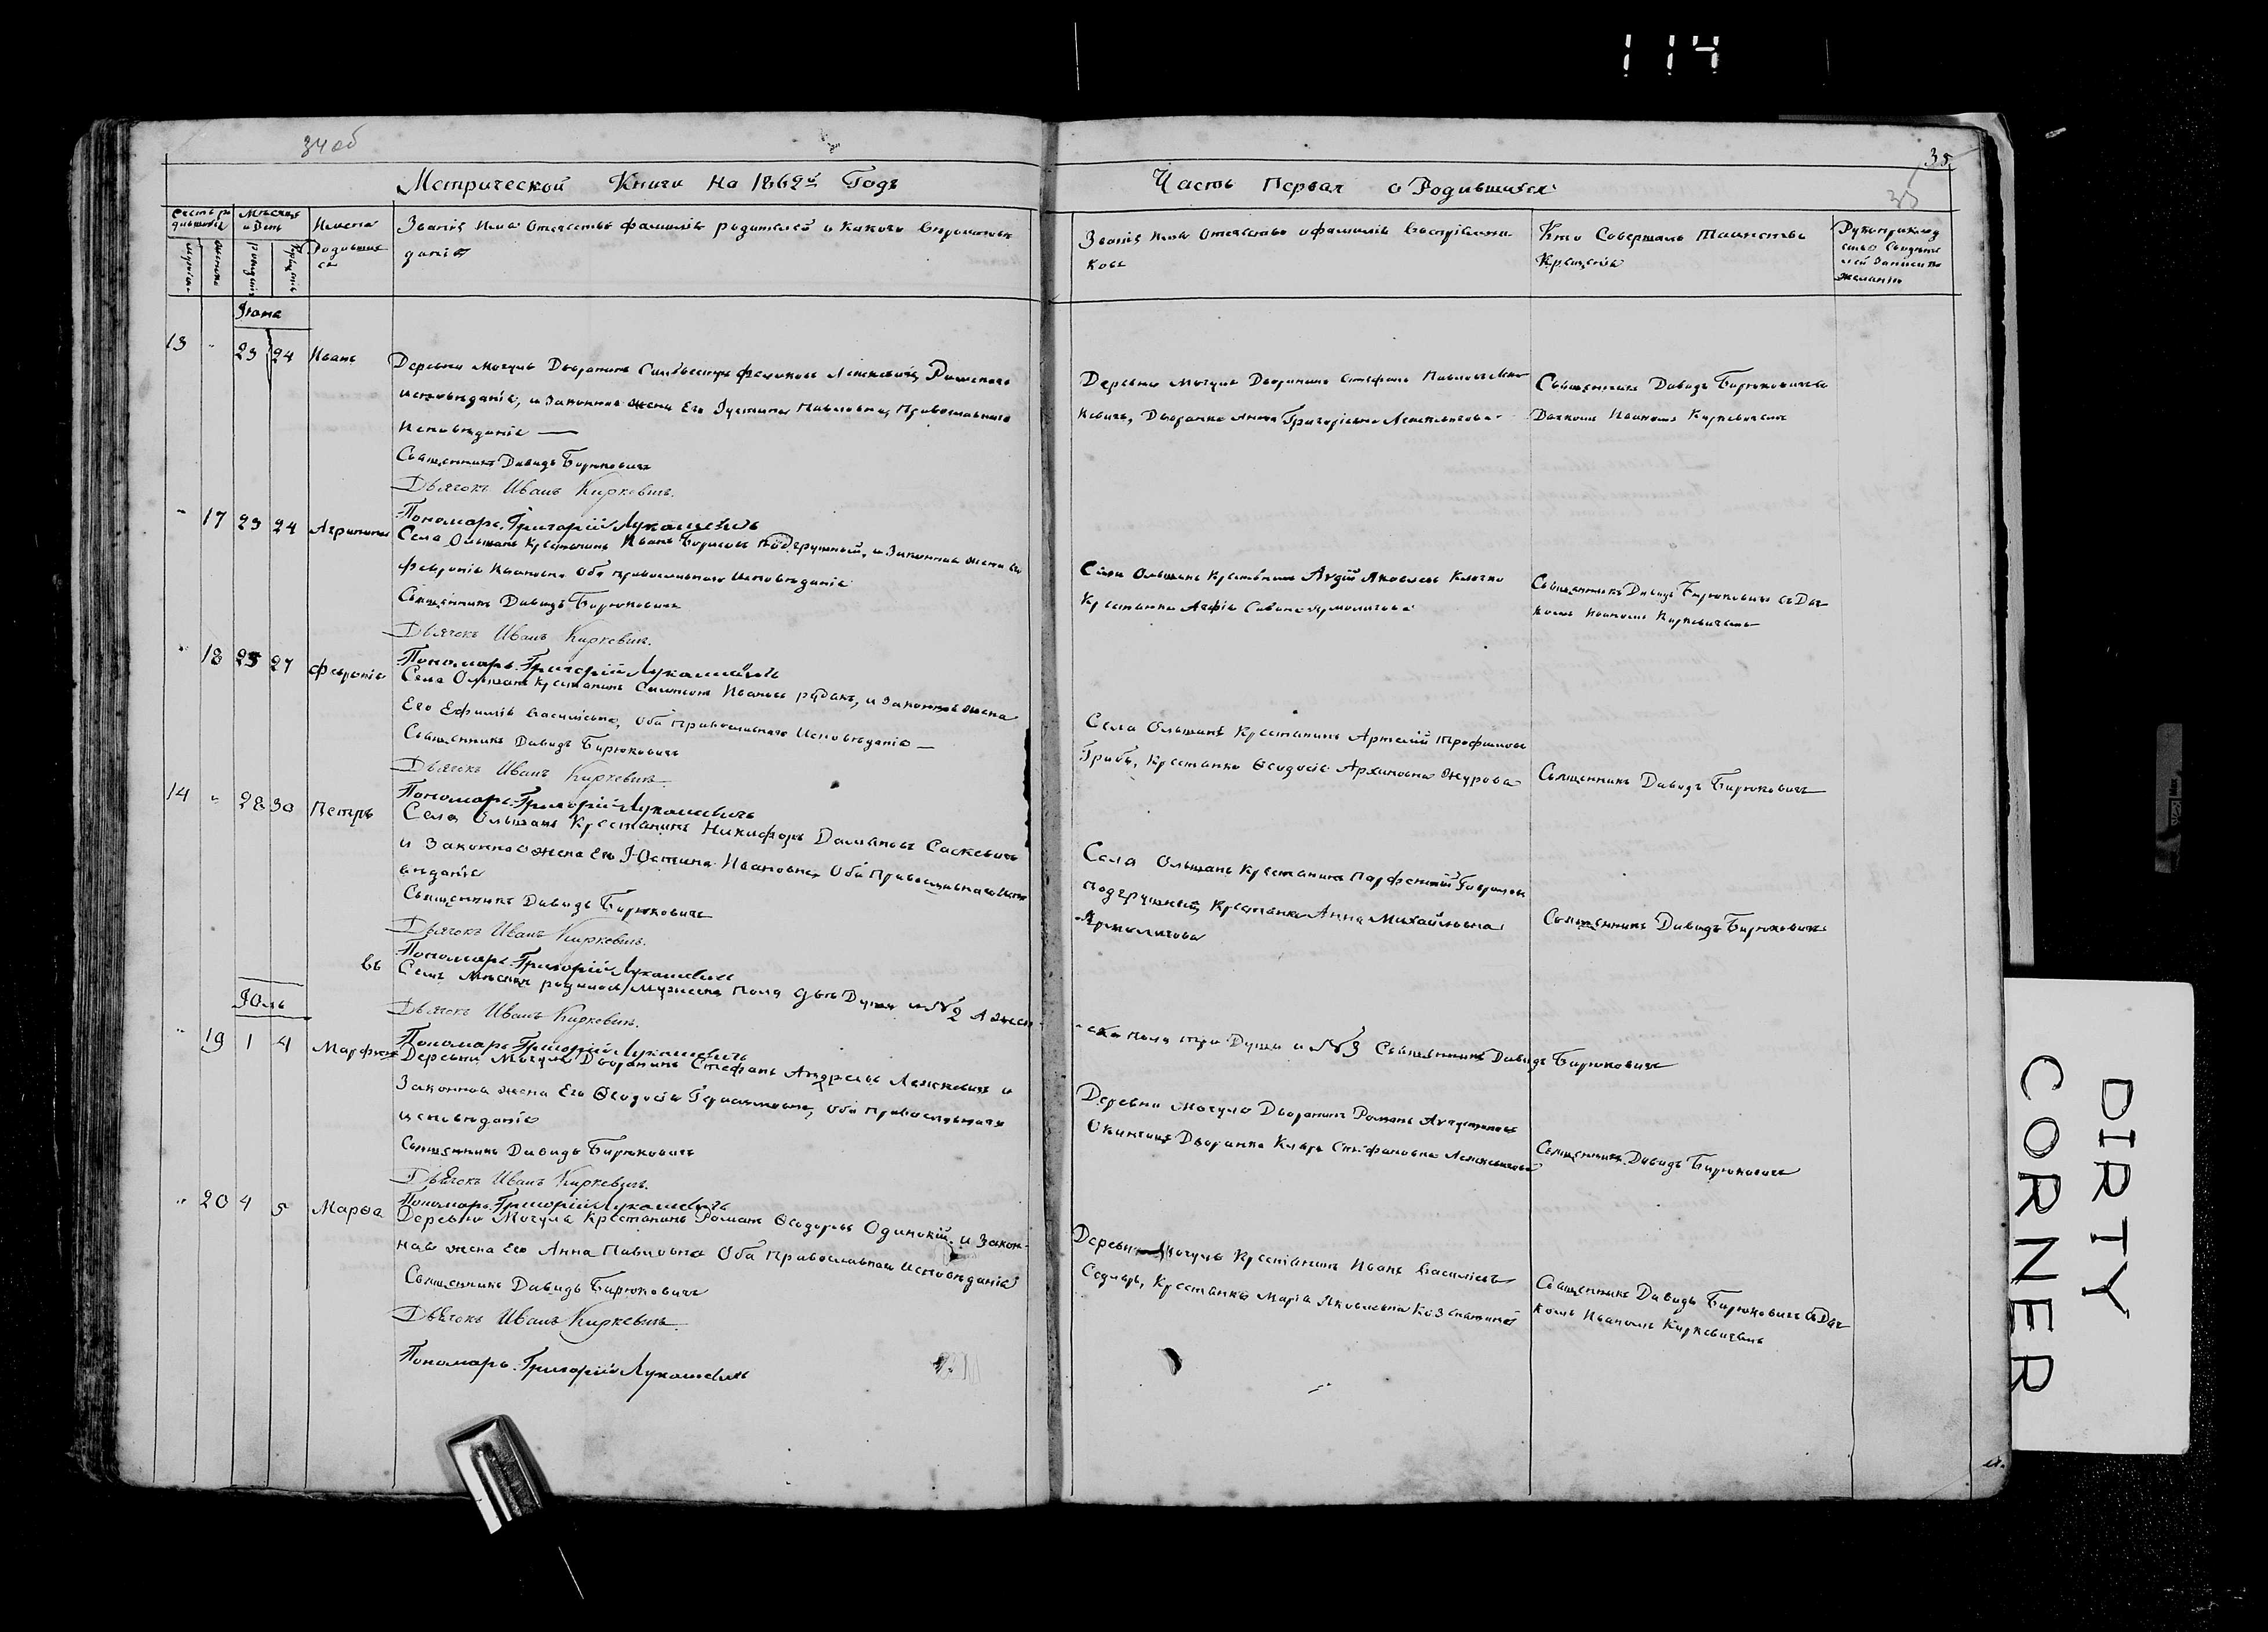 114
34 об
35
33
Метрической Книги На 1862й Годъ
Часть Первая о Родившихся
Счетъ родившихся
Мѣсяцъ и День
Имена Родившихся
Званіе Имя Отечество фамилія родителей и какого вѣроисповѣданія
Званіе Имя Отечество и фамилія воспріемниковъ
Кто Совершалъ Таинство Крещенія
Рукоприкладство Свидѣтелей Записи по желанію
Іюнь
13 " 23 24 Иванъ
Деревни Могуль Дворянинъ Сильвестръ Лешкевичъ, Римскаго
исповѣданія, и Законная жена Его Іустина Павловна, Православнаго
Исповѣданія —
Священникъ Давидъ Бирюковичъ
Дьячокъ Иванъ Киркевичъ.
Пономарь Григорій Лукашевичъ
Деревни Могуль Дворянинъ Стефанъ Павловъ
Дворянка Анна Григорьева Лешкевичова
Священникъ Давидъ Бирюковичъ съ
Дячкомъ Иваномъ Киркевичемъ
" 17 23 24 Агрипина
Села Ольшанъ Крестьянинъ Иванъ Борисовъ Подгрушный, и Законная жена Его
Февронія Ивановна Оба православнаго Исповѣданія
Священникъ Давидъ Бирюковичъ
Дьячокъ Иванъ Киркевичъ.
Пономарь Григорій Лукашевичъ
Села Ольшанъ Крестьянинъ Авдій Яковлевъ Клочко
Крестьянка Агафія Ярмоличова
Священникъ Давидъ Бирюковичъ съ Дячкомъ
Иваномъ Киркевичемъ
" 18 25 27 Февронія
Села Ольшанъ Крестьянинъ Симеонъ Ивановъ Рудакъ, и Законная жена
Его Ефимія Васильевна, Оба Православнаго Исповѣданія —
Священникъ Давидъ Бирюковичъ
Дьячокъ Иванъ Киркевичъ.
Пономарь Григорій Лукашевичъ
Села Ольшанъ Крестьянинъ Артемій Трофимовъ
Грибъ, Крестьянка Ѳеодосія Архиповна Журова
Священникъ Давидъ Бирюковичъ
14 " 28 30 Петръ
Села Ольшанъ Крестьянинъ Никифоръ Даміановъ Саскевичъ
и Законная жена Его Юстина Ивановна, Оба Православнаго Испо
вѣданія
Священникъ Давидъ Бирюковичъ
Дьячокъ Иванъ Киркевичъ.
Пономарь Григорій Лукашевичъ
Села Ольшанъ Крестьянинъ Парфеній Гавриловъ
Подгрушный, Крестьянка Анна Михайловна
Ярмоличова
Священникъ Давидъ Бирюковичъ
Въ Семъ Мѣсяцѣ родилось Мужеска Пола двѣ Души и № 2 А женска
пола три Души и № 3 Священникъ Давидъ Бирюковичъ
Дьячокъ Иванъ Киркевичъ.
Пономарь Григорій Лукашевичъ
Юль
" 19 1 4 Марфа
Деревни Могуль Дворянинъ Стефанъ Андреевъ Лешкевичъ и
Законная жена Его Ѳеодосія Герасимовна, Оба Православнаго
исповѣданія
Священникъ Давидъ Бирюковичъ
Дьячокъ Иванъ Киркевичъ.
Пономарь Григорій Лукашевичъ
Деревни Могуль Дворянинъ Романъ Августиновъ
Окинчицъ Дворянка Клара Стефановна Лешкевичова
Священникъ Давидъ Бирюковичъ
" 20 4 5 Марѳа
Деревни Могуль Крестьянинъ Романъ Ѳеодоровъ Одинокій и Закон
ная жена Его Анна Павловна Оба Православнаго исповѣданія
Священникъ Давидъ Бирюковичъ
Дьячокъ Иванъ Киркевичъ.
Пономарь Григорій Лукашевичъ
Деревни Могуль Крестьянинъ Иванъ Васильевъ
Седляръ, Крестьянка Марія Яковлевна
Священникъ Давидъ Бирюковичъ съ Дяч
комъ Иваномъ Киркевичемъ
DIRTY
CORNER